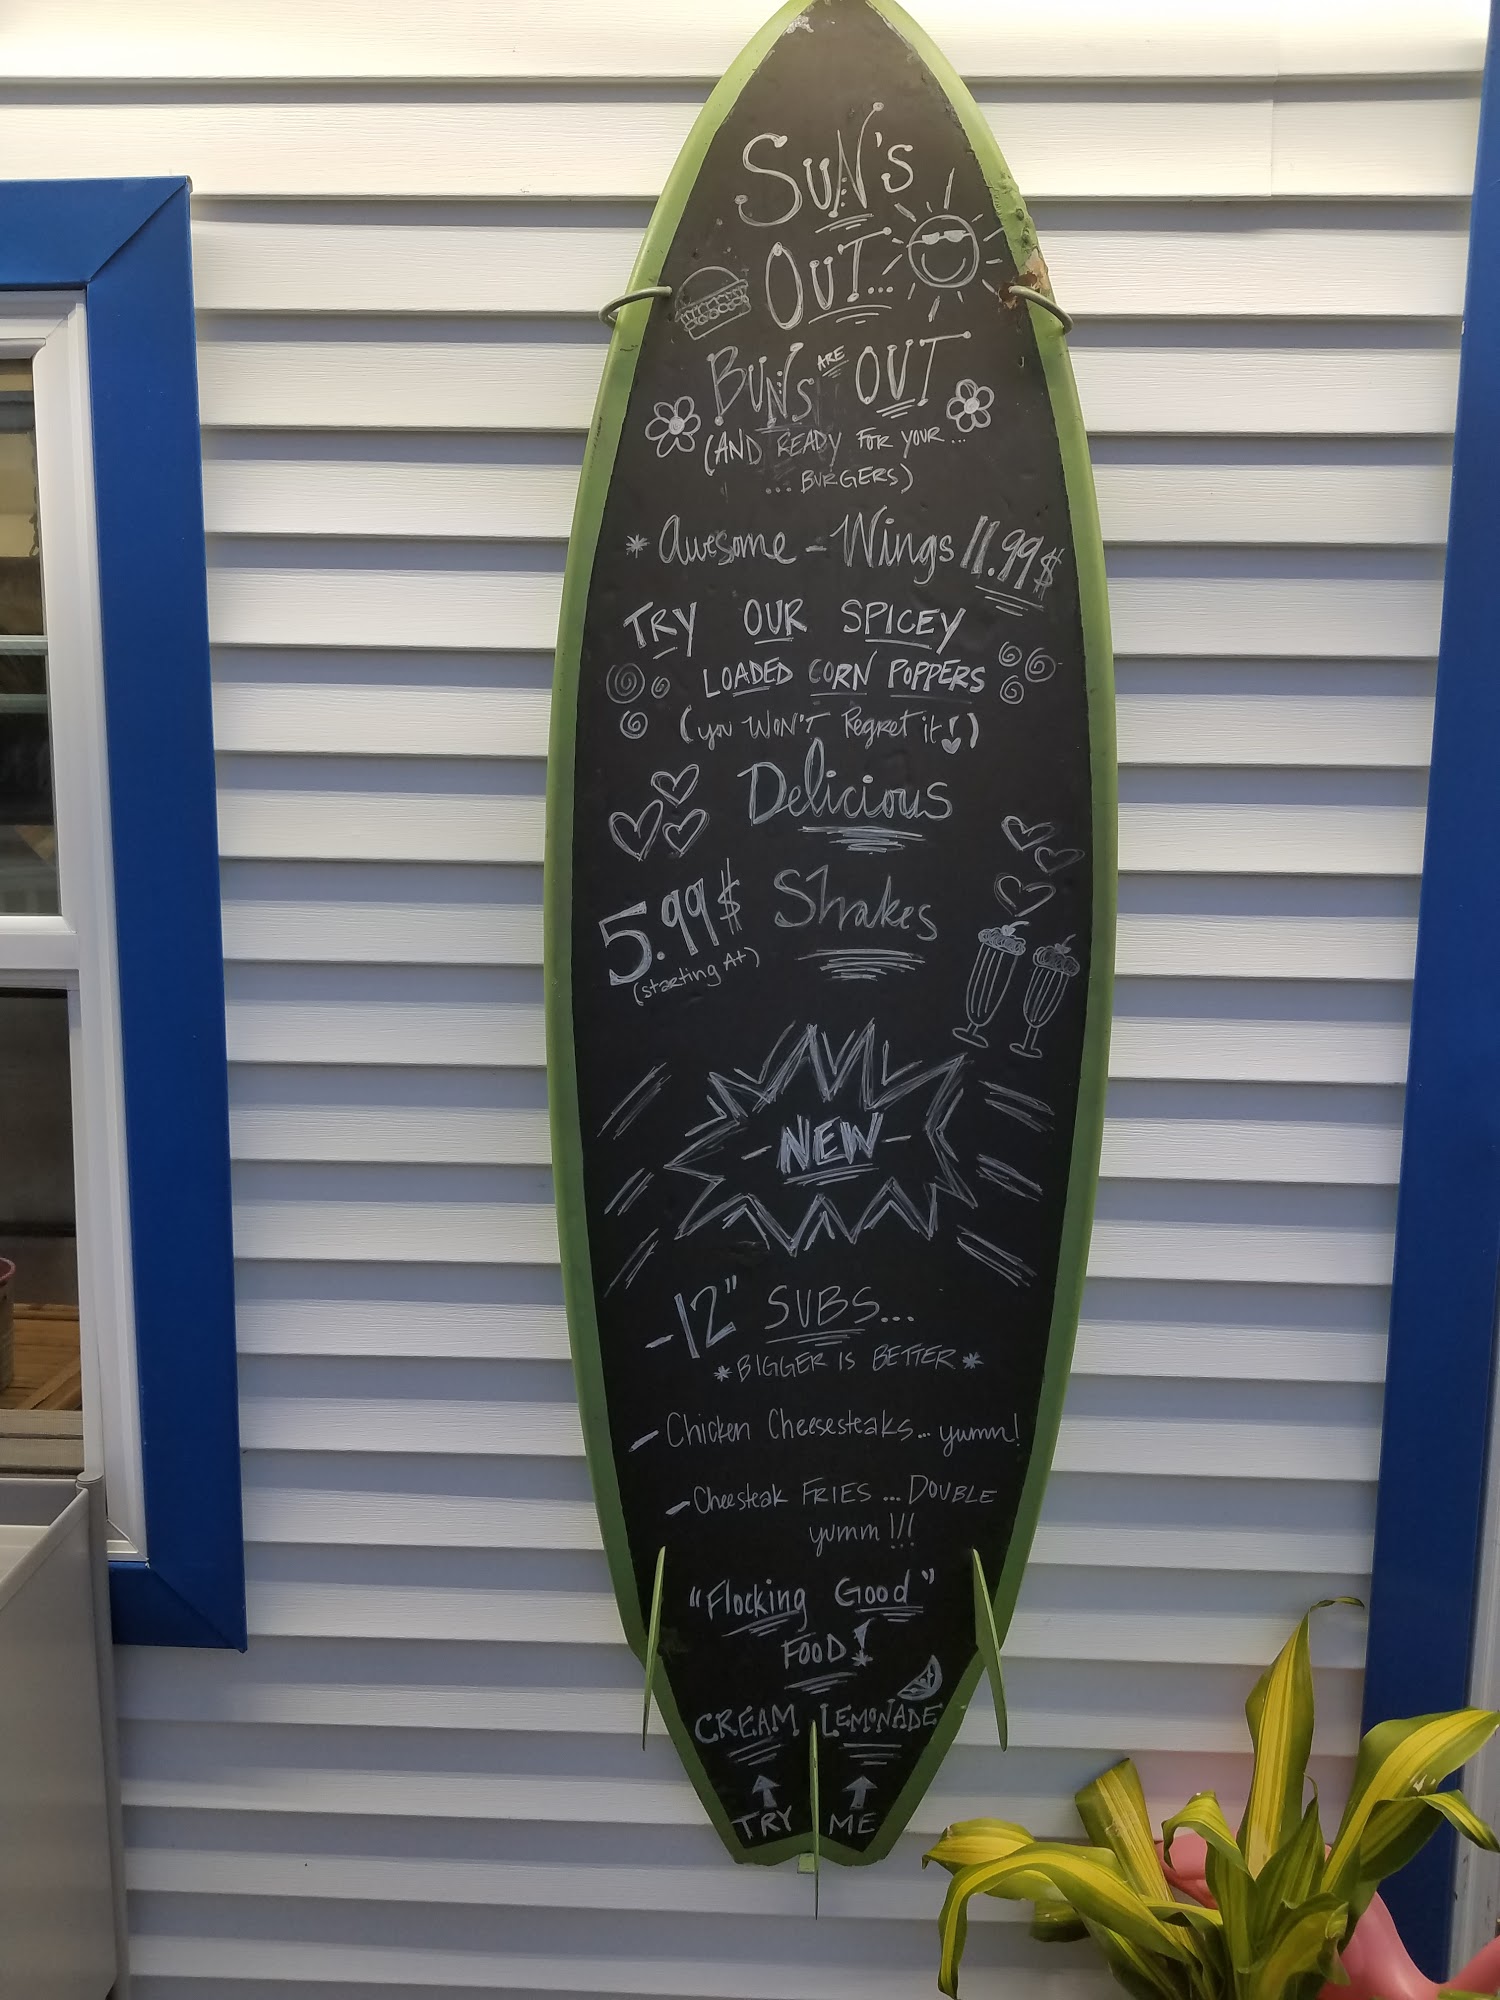 SUN'S
OUT...
BUNS ARE OUT
(AND READY FOR YOUR...
... BURGERS)
* Awesome - Wings 11.99$
TRY OUR SPICEY
LOADED CORN POPPERS
(you WON'T Regret it!)
Delicious
5.99$ Shakes
(starting At)
-NEW-
-12" SUBS...
*BIGGER IS BETTER*
- Chicken Cheesesteaks... yumm!
- Cheesteak FRIES ... DOUBLE
yumm!!!
"Flocking Good"
FOOD!
CREAM LEMONADE
TRY ME